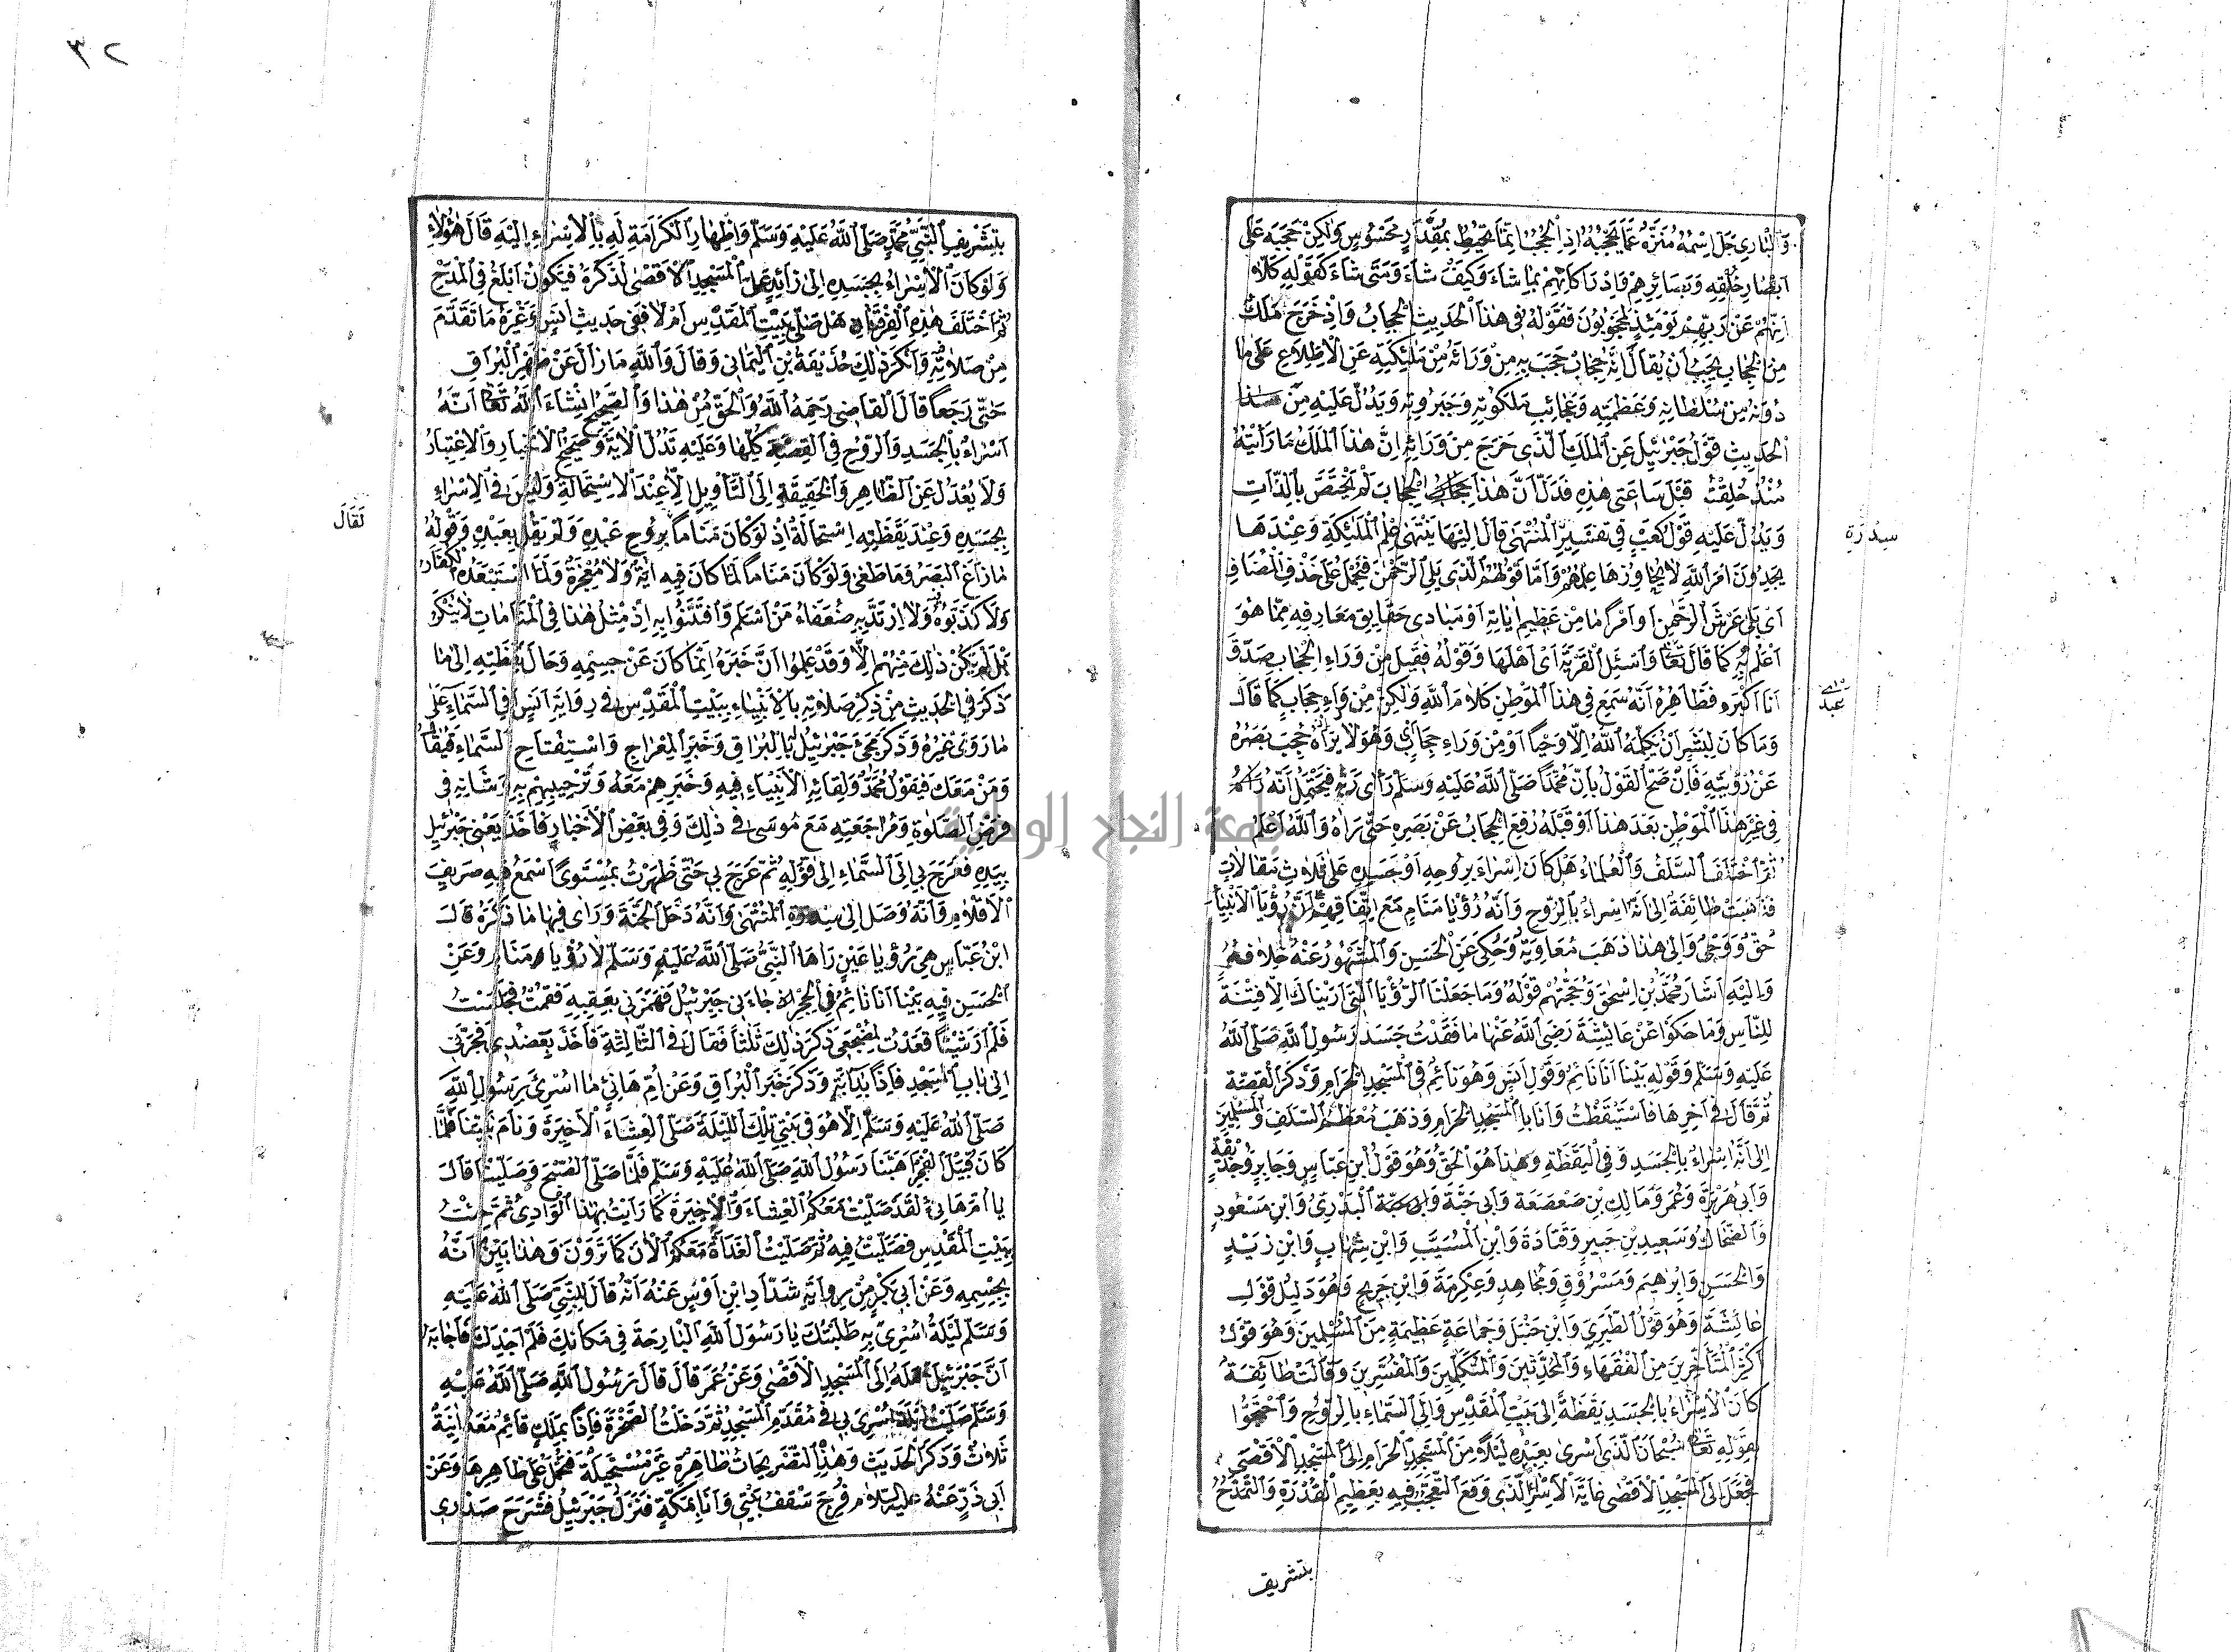 وَالْبَارِي جَلَّ اسْمُهُ مُنَزَّهٌ عَمَّا يَحْجُبُهُ اِذِ الْحُجُبُ اِنَّمَا تُحِيطُ بِمُقَدَّرٍ مَحْسُوسٍ وَلٰكِنْ حَجَبَهُ عَلٰى
اَبْصَارِ خَلْقِهِ وَبَصَائِرِهِمْ وَاِدْرَاكَاتِهِمْ بِمَا شَاءَ وَكَيْفَ شَاءَ وَمَتٰى شَاءَ كَقَوْلِهِ كَلَّا
اِنَّهُمْ عَنْ رَبِّهِمْ يَوْمَئِذٍ لَمَحْجُوبُونَ فَقَوْلُهُ فِي هٰذَا الْحَدِيثِ الْحِجَابُ وَاِذْ خَرَجَ مَلَكٌ
مِنَ الْحِجَابِ يَجِبُ اَنْ يُقَالَ اِنَّهُ حِجَابٌ حَجَبَ بِهِ مِنْ وَرَائِهِ مِنْ مَلٰئِكَتِهِ عَنِ الْاِطِّلَاعِ عَلٰى مَا
دُونَهُ مِنْ سُلْطَانِهِ وَعَظَمَتِهِ وَعَجَائِبِ مَلَكُوتِهِ وَجَبَرُوتِهِ وَيَدُلُّ عَلَيْهِ مِنْ هٰذَا
الْحَدِيثِ قَوْلُ جَبْرَئِيلَ عَنِ الْمَلَكِ الَّذِي خَرَجَ مِنْ وَرَائِهِ اِنَّ هٰذَا الْمَلَكَ مَا رَاَيْتُهُ
مُنْذُ خُلِقْتُ قَبْلَ سَاعَتِي هٰذِهِ فَدَلَّ اَنَّ هٰذَا الْحِجَابَ لَمْ يَخْتَصَّ بِالذَّاتِ
وَيَدُلُّ عَلَيْهِ قَوْلُ كَعْبٍ فِي تَفْسِيرِ الْمُنْتَهٰى قَالَ اِلَيْهَا يَنْتَهِي عِلْمُ الْمَلٰئِكَةِ وَعِنْدَهَا
سِدْرَةِ
يَجِدُونَ اَمْرَ اللّٰهِ لَا يُجَاوِزُهَا عِلْمُهُمْ وَاَمَّا قَوْلُهُ الَّذِي يَلِي الرَّحْمٰنَ فَيُحْمَلُ عَلٰى حَذْفِ الْمُضَافِ
اَيْ يَلِي عَرْشَ الرَّحْمٰنِ اَوْ اَمْرًا مَا مِنْ عَظِيمِ اٰيَاتِهِ اَوْ مَبَادِي حَقَايِقِ مَعَارِفِهِ مِمَّا هُوَ
اَعْلَمُ بِهِ كَمَا قَالَ تَعَالٰى وَاسْئَلِ الْقَرْيَةَ اَيْ اَهْلَهَا وَقَوْلُهُ فَقِيلَ مِنْ وَرَاءِ الْحِجَابِ صَدَقَ
عَبْدِي
اَنَا اَكْبَرُ فَظَاهِرُهُ اَنَّهُ سَمِعَ فِي هٰذَا الْمَوْطِنِ كَلَامَ اللّٰهِ وَلٰكِنْ مِنْ وَرَاءِ حِجَابٍ كَمَا قَالَ
وَمَا كَانَ لِبَشَرٍ اَنْ يُكَلِّمَهُ اللّٰهُ اِلَّا وَحْيًا اَوْ مِنْ وَرَاءِ حِجَابٍ اَيْ وَهُوَ لَا يَرَاهُ حَجَبَ بَصَرَهُ
عَنْ رُؤْيَتِهِ فَاِنْ صَحَّ الْقَوْلُ بِاَنَّ مُحَمَّدًا صَلَّى اللّٰهُ عَلَيْهِ وَسَلَّمَ رَاٰى رَبَّهُ فَيَحْتَمِلُ اَنَّهُ رَاٰهُ
فِي غَيْرِ هٰذَا الْمَوْطِنِ بَعْدَ هٰذَا اَوْ قَبْلَهُ رُفِعَ الْحِجَابُ عَنْ بَصَرِهِ حَتّٰى رَاٰهُ وَاللّٰهُ اَعْلَمُ
ثُمَّ اخْتَلَفَ السَّلَفُ وَالْعُلَمَاءُ هَلْ كَانَ اِسْرَاءٌ بِرُوحِهِ اَوْ جَسَدِهِ عَلٰى ثَلَاثِ مَقَالَاتٍ
فَذَهَبَتْ طَائِفَةٌ اِلٰى اَنَّهُ اِسْرَاءٌ بِالرُّوحِ وَاَنَّهُ رُؤْيَا مَنَامٍ مَعَ اتِّفَاقِهِمْ اَنَّ رُؤْيَا الْاَنْبِيَاءِ
حَقٌّ وَوَحْيٌ وَاِلٰى هٰذَا ذَهَبَ مُعَاوِيَةُ وَحُكِيَ عَنِ الْحَسَنِ وَالْمَشْهُورُ عَنْهُ خِلَافُهُ
وَاِلَيْهِ اَشَارَ مُحَمَّدُ بْنُ اِسْحٰقَ وَحُجَّتُهُمْ قَوْلُهُ وَمَا جَعَلْنَا الرُّؤْيَا الَّتِي اَرَيْنَاكَ اِلَّا فِتْنَةً
لِلنَّاسِ وَمَا حَكَوْا عَنْ عَائِشَةَ رَضِيَ اللّٰهُ عَنْهَا مَا فَقَدْتُ جَسَدَ رَسُولِ اللّٰهِ صَلَّى اللّٰهُ
عَلَيْهِ وَسَلَّمَ وَقَوْلِهِ بَيْنَا اَنَا نَائِمٌ وَقَوْلِ اَنَسٍ وَهُوَ نَائِمٌ فِي الْمَسْجِدِ الْحَرَامِ وَذَكَرَ الْقِصَّةَ
ثُمَّ قَالَ فِي اٰخِرِهَا فَاسْتَيْقَظْتُ وَاَنَا بِالْمَسْجِدِ الْحَرَامِ وَذَهَبَ مُعْظَمُ السَّلَفِ وَالْمُسْلِمِينَ
اِلٰى اَنَّهُ اِسْرَاءٌ بِالْجَسَدِ وَفِي الْيَقَظَةِ وَهٰذَا هُوَ الْحَقُّ وَهُوَ قَوْلُ ابْنِ عَبَّاسٍ وَجَابِرٍ وَحُذَيْفَةَ
وَاَبِي هُرَيْرَةَ وَعُمَرَ وَمَالِكِ بْنِ صَعْصَعَةَ وَاَبِي حَبَّةَ الْبَدْرِيِّ وَابْنِ مَسْعُودٍ
وَالضَّحَّاكِ وَسَعِيدِ بْنِ جُبَيْرٍ وَقَتَادَةَ وَابْنِ الْمُسَيَّبِ وَابْنِ شِهَابٍ وَابْنِ زَيْدٍ
وَالْحَسَنِ وَاِبْرٰهِيمَ وَمَسْرُوقٍ وَمُجَاهِدٍ وَعِكْرِمَةَ وَابْنِ جُرَيْجٍ وَهُوَ دَلِيلُ قَوْلِ
عَائِشَةَ وَهُوَ قَوْلُ الطَّبَرِيِّ وَابْنِ حَنْبَلٍ وَجَمَاعَةٍ عَظِيمَةٍ مِنَ الْمُسْلِمِينَ وَهُوَ قَوْلُ
اَكْثَرِ الْمُتَاَخِّرِينَ مِنَ الْفُقَهَاءِ وَالْمُحَدِّثِينَ وَالْمُتَكَلِّمِينَ وَالْمُفَسِّرِينَ وَقَالَتْ طَائِفَةٌ
كَانَ الْاِسْرَاءُ بِالْجَسَدِ يَقَظَةً اِلٰى بَيْتِ الْمَقْدِسِ وَاِلَى السَّمَاءِ بِالرُّوحِ وَاحْتَجُّوا
بِقَوْلِهِ تَعَالٰى سُبْحَانَ الَّذِي اَسْرٰى بِعَبْدِهِ لَيْلًا مِنَ الْمَسْجِدِ الْحَرَامِ اِلَى الْمَسْجِدِ الْاَقْصٰى
فَجَعَلَ اِلَى الْمَسْجِدِ الْاَقْصٰى غَايَةَ الْاِسْرَاءِ الَّذِي وَقَعَ التَّعَجُّبُ فِيهِ بِعَظِيمِ الْقُدْرَةِ وَالتَّمَدُّحُ
بتشريف
٣٢
بِتَشْرِيفِ النَّبِيِّ مُحَمَّدٍ صَلَّى اللّٰهُ عَلَيْهِ وَسَلَّمَ وَاِظْهَارِ الْكَرَامَةِ لَهُ بِالْاِسْرَاءِ اِلَيْهِ قَالَ هٰؤُلَاءِ
وَلَوْ كَانَ الْاِسْرَاءُ بِجَسَدِهِ اِلٰى زَائِدٍ عَلَى الْمَسْجِدِ الْاَقْصٰى لَذَكَرَهُ فَيَكُونُ اَبْلَغَ فِي الْمَدْحِ
ثُمَّ اخْتَلَفَ هٰذِهِ الْفِرْقَتَانِ هَلْ صَلّٰى بِبَيْتِ الْمَقْدِسِ اَمْ لَا فَفِي حَدِيثِ اَنَسٍ وَغَيْرِهِ مَا تَقَدَّمَ
مِنْ صَلَاتِهِ فِيهِ وَاَنْكَرَ ذٰلِكَ حُذَيْفَةُ بْنُ الْيَمَانِي وَقَالَ وَاللّٰهِ مَا زَالَ عَنْ ظَهْرِ الْبُرَاقِ
حَتّٰى رَجَعَا قَالَ الْقَاضِي رَحِمَهُ اللّٰهُ وَالْحَقُّ مِنْ هٰذَا وَالصَّحِيحُ اِنْشَاءَ اللّٰهُ تَعَالٰى اَنَّهُ
اِسْرَاءٌ بِالْجَسَدِ وَالرُّوحِ فِي الْقِصَّةِ كُلِّهَا وَعَلَيْهِ تَدُلُّ الْاٰيَةُ وَصَحِيحُ الْاَخْبَارِ وَالْاِعْتِبَارُ
وَلَا يُعْدَلُ عَنِ الظَّاهِرِ وَالْحَقِيقَةِ اِلَى التَّأْوِيلِ اِلَّا عِنْدَ الْاِسْتِحَالَةِ وَلَيْسَ فِي الْاِسْرَاءِ
لَقَالَ
بِجَسَدِهِ وَعِنْدَ يَقَظَتِهِ اِسْتِحَالَةٌ اِذْ لَوْ كَانَ مَنَامًا بِرُوحِ عَبْدِهِ وَلَمْ يَقُلْ بِعَبْدِهِ وَقَوْلُهُ
مَا زَاغَ الْبَصَرُ وَمَا طَغٰى وَلَوْ كَانَ مَنَامًا لَمَا كَانَ فِيهِ اٰيَةٌ وَلَا مُعْجِزَةٌ وَلَمَا اسْتَبْعَدَهُ الْكُفَّارُ
وَلَا كَذَّبُوهُ وَلَا ارْتَدَّ بِهِ ضُعَفَاءُ مَنْ اَسْلَمَ وَافْتَتَنُوا بِهِ اِذْ مِثْلُ هٰذَا فِي الْمَنَامَاتِ لَا يُنْكَرُ
بَلْ لَمْ يَكُنْ ذٰلِكَ مِنْهُمْ اِلَّا وَقَدْ عَلِمُوا اَنَّ خَبَرَهُ اِنَّمَا كَانَ عَنْ جِسْمِهِ وَحَالِ يَقَظَتِهِ اِلٰى مَا
ذَكَرَ فِي الْحَدِيثِ مِنْ ذِكْرِ صَلَاتِهِ بِالْاَنْبِيَاءِ بِبَيْتِ الْمَقْدِسِ فِي رِوَايَةِ اَنَسٍ اَوْ فِي السَّمَاءِ عَلٰى
مَا رَوٰى غَيْرُهُ وَذَكَرَ مَجِيءَ جَبْرَئِيلَ بِالْبُرَاقِ وَخَبَرَ الْمِعْرَاجِ وَاسْتِفْتَاحِ السَّمَاءِ فَيُقَالُ
وَمَنْ مَعَكَ فَيَقُولُ مُحَمَّدٌ وَلِقَائِهِ الْاَنْبِيَاءَ فِيهِ وَخَبَرِهِمْ مَعَهُ وَتَرْحِيبِهِمْ بِهِ وَشَانِهِ فِي
فَرْضِ الصَّلٰوةِ وَمُرَاجَعَتِهِ مَعَ مُوسٰى فِي ذٰلِكَ وَفِي بَعْضِ الْاَخْبَارِ فَاَخَذَ يَعْنِي جَبْرَئِيلَ
بِيَدِهِ فَعَرَجَ بِي اِلَى السَّمَاءِ اِلٰى قَوْلِهِ ثُمَّ عَرَجَ بِي حَتّٰى ظَهَرْتُ بِمُسْتَوًى اَسْمَعُ فِيهِ صَرِيفَ
الْاَقْلَامِ وَاَنَّهُ وَصَلَ اِلٰى سِدْرَةِ الْمُنْتَهٰى وَاَنَّهُ دَخَلَ الْجَنَّةَ وَرَاٰى فِيهَا مَا ذَكَرَهُ قَالَ
ابْنُ عَبَّاسٍ هِيَ رُؤْيَا عَيْنٍ رَاٰهَا النَّبِيُّ صَلَّى اللّٰهُ عَلَيْهِ وَسَلَّمَ لَا رُؤْيَا مَنَامٍ وَعَنِ
الْحَسَنِ فِيهِ بَيْنَا اَنَا نَائِمٌ فِي الْحِجْرِ جَاءَنِي جِبْرَئِيلُ فَهَمَزَنِي بِعَقِبِهِ فَقُمْتُ فَجَلَسْتُ
فَلَمْ اَرَ شَيْئًا فَعُدْتُ لِمَضْجَعِي ذَكَرَ ذٰلِكَ ثَلٰثًا فَقَالَ فِي الثَّالِثَةِ فَاَخَذَ بِعَضُدِي فَجَرَّنِي
اِلٰى بَابِ الْمَسْجِدِ فَاِذًا بِدَابَّةٍ وَذَكَرَ خَبَرَ الْبُرَاقِ وَعَنْ اُمِّ هَانِئٍ مَا اُسْرِيَ بِرَسُولِ اللّٰهِ
صَلَّى اللّٰهُ عَلَيْهِ وَسَلَّمَ اِلَّا هُوَ فِي بَيْتِي تِلْكَ اللَّيْلَةَ صَلَّى الْعِشَاءَ الْاَخِيرَةَ وَنَامَ بَيْنَنَا فَلَمَّا
كَانَ قُبَيْلَ الْفَجْرِ اَهَبَّنَا رَسُولُ اللّٰهِ صَلَّى اللّٰهُ عَلَيْهِ وَسَلَّمَ فَلَمَّا صَلَّى الصُّبْحَ وَصَلَّيْنَا قَالَ
يَا اُمَّ هَانِئٍ لَقَدْ صَلَّيْتُ مَعَكُمُ الْعِشَاءَ الْاَخِيرَةَ كَمَا رَاَيْتِ بِهٰذَا الْوَادِي ثُمَّ جِئْتُ
بَيْتَ الْمَقْدِسِ فَصَلَّيْتُ فِيهِ ثُمَّ صَلَّيْتُ الْغَدَاةَ مَعَكُمُ الْاٰنَ كَمَا تَرَوْنَ وَهٰذَا بَيِّنٌ اَنَّهُ
بِجِسْمِهِ وَعَنْ اَبِي بَكْرٍ مِنْ رِوَايَةِ شَدَّادِ ابْنِ اَوْسٍ عَنْهُ اَنَّهُ قَالَ لِلنَّبِيِّ صَلَّى اللّٰهُ عَلَيْهِ
وَسَلَّمَ لَيْلَةَ اُسْرِيَ بِهِ طَلَبْتُكَ يَا رَسُولَ اللّٰهِ الْبَارِحَةَ فِي مَكَانِكَ فَلَمْ اَجِدْكَ فَاَجَابَهُ
اَنَّ جَبْرَئِيلَ حَمَلَهُ اِلَى الْمَسْجِدِ الْاَقْصٰى وَعَنْ عُمَرَ قَالَ قَالَ رَسُولُ اللّٰهِ صَلَّى اللّٰهُ عَلَيْهِ
وَسَلَّمَ صَلَّيْتُ لَيْلَةَ اُسْرِيَ بِي فِي مُقَدَّمِ الْمَسْجِدِ ثُمَّ دَخَلْتُ الصَّخْرَةَ فَاِذًا بِمَلَكٍ قَائِمٍ مَعَهُ اٰنِيَةٌ
ثَلَاثٌ وَذَكَرَ الْحَدِيثَ وَهٰذِهِ التَّصْرِيحَاتُ ظَاهِرَةٌ غَيْرُ مُسْتَحِيلَةٍ فَتُحْمَلُ عَلٰى ظَاهِرِهَا وَعَنْ
اَبِي ذَرٍّ عَنْهُ عليه السلام فُرِجَ سَقْفُ بَيْتِي وَاَنَا بِمَكَّةَ فَنَزَلَ جَبْرَئِيلُ فَشَرَحَ صَدْرِي
جامعة النجاح الوطنية